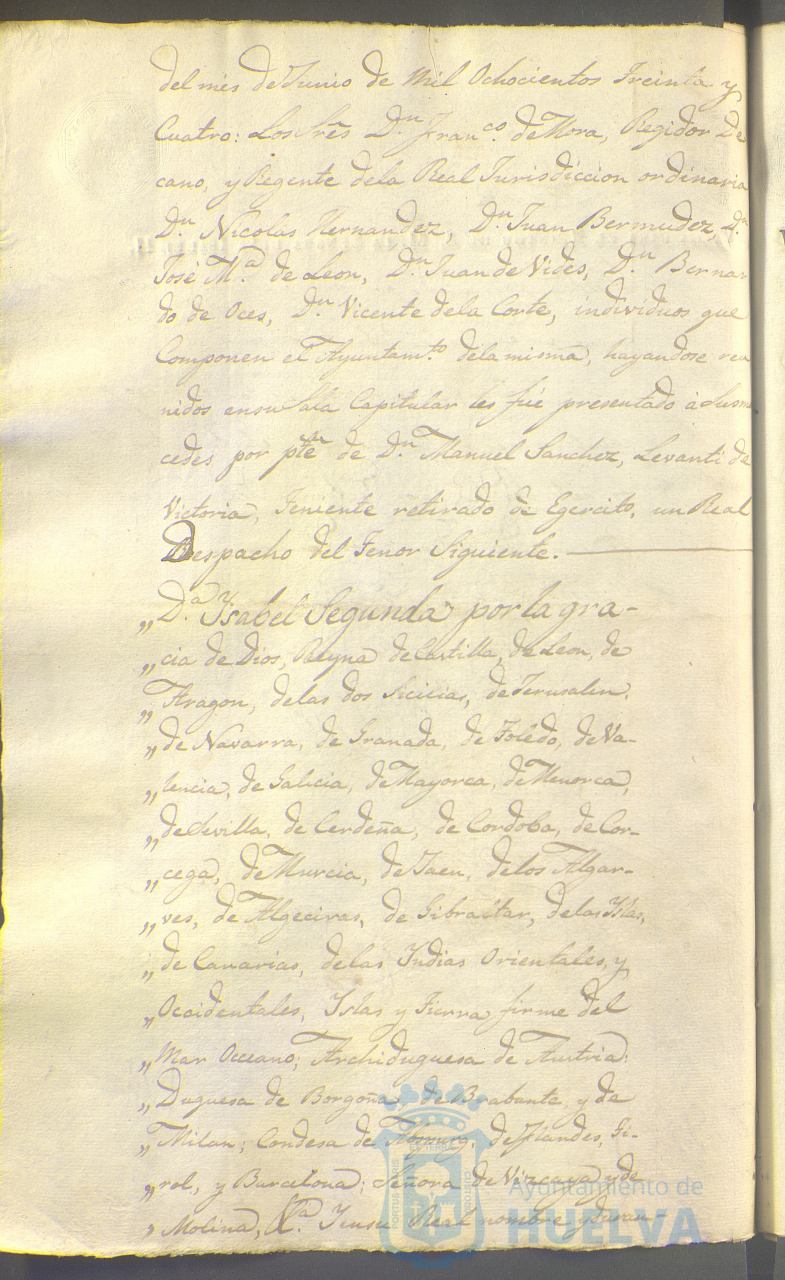 del mes de Junio de Mil Ochocientos Treinta y
Cuatro: Los Sres Dn. Franco. de Mora, Regidor De
cano, y Regente dela Real Jurisdiccion ordinaria
Dn. Nicolas Hernandez, Dn. Juan Bermudez, Dn.
José Ma. de Leon, Dn. Juan de Vides, Dn. Bernar
do de Oces, Dn. Vicente dela Corte, individuos que
Componen el Ayuntamto. dela misma, hayandose reu
nidos ensu Sala Capitular les fué presentado à Susmr
cedes por pte de Dn. Manuel Sanchez, Levanti de
Victoria, Teniente retirado de Egercito, un Real
Despacho del Tenor Siguiente.
„ Da. Ysabel Segunda por la gra-
„ cia de Dios, Reyna de Castilla, de Leon, de
„ Aragon, delas dos Sicilias, de Jerusalen,
„ de Navarra, de Granada, de Toledo, de Va-
„ lencia, de Galicia, de Mayorca, de Menorca,
„ de Sevilla, de Cerdeña, de Cordoba, de Cor-
„ cega, de Murcia, de Jaen, delos Algar-
„ ves, de Algeciras, de Gibraltar, delas Yslas,
„ de Canarias, delas Yndias Orientales, y
„ Occidentales, Yslas y Tierra firme del
„ Mar Occeano; Archiduquesa de Austria;
„ Duquesa de Borgoña, de Brabante y de
„ Milan; Condesa de Abspurg, de Flandes, Ti-
„ rol, y Barcelona; Señora de Vizcaya y de
„ Molina, &a. Y ensu Real nombre y duran
Ayuntamiento de
HUELVA